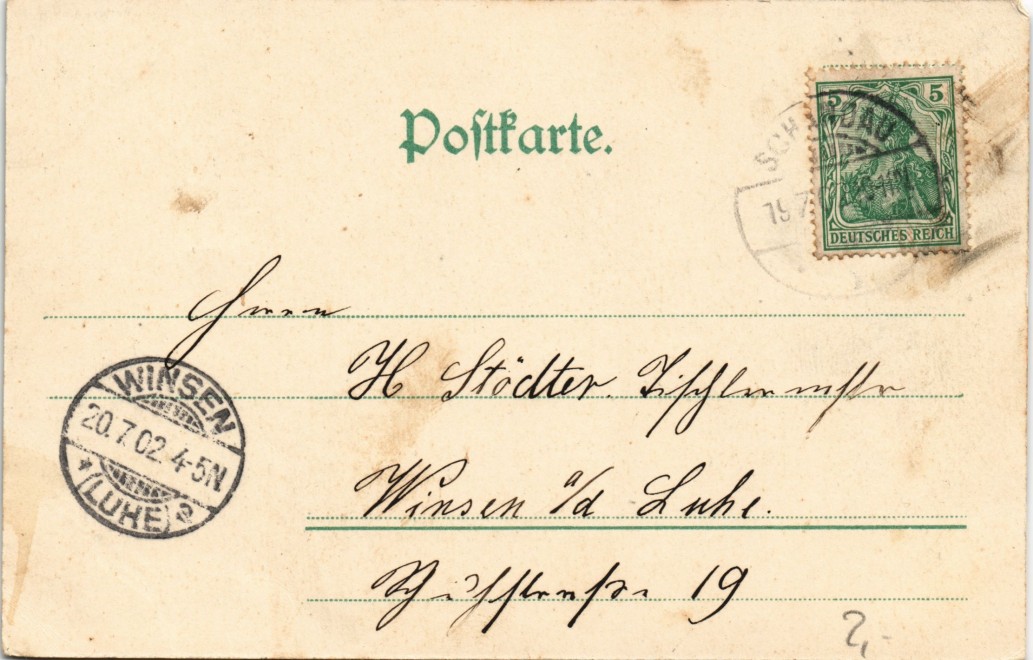 Postkarte.
5 5
DEUTSCHES REICH
SCHANDAU
19.7
Herrn
H Stödter. Tischlermstr
Winsen a/d Luhe.
19
WINSEN
20.7.02.4-5N
* (LUHE)
2,-